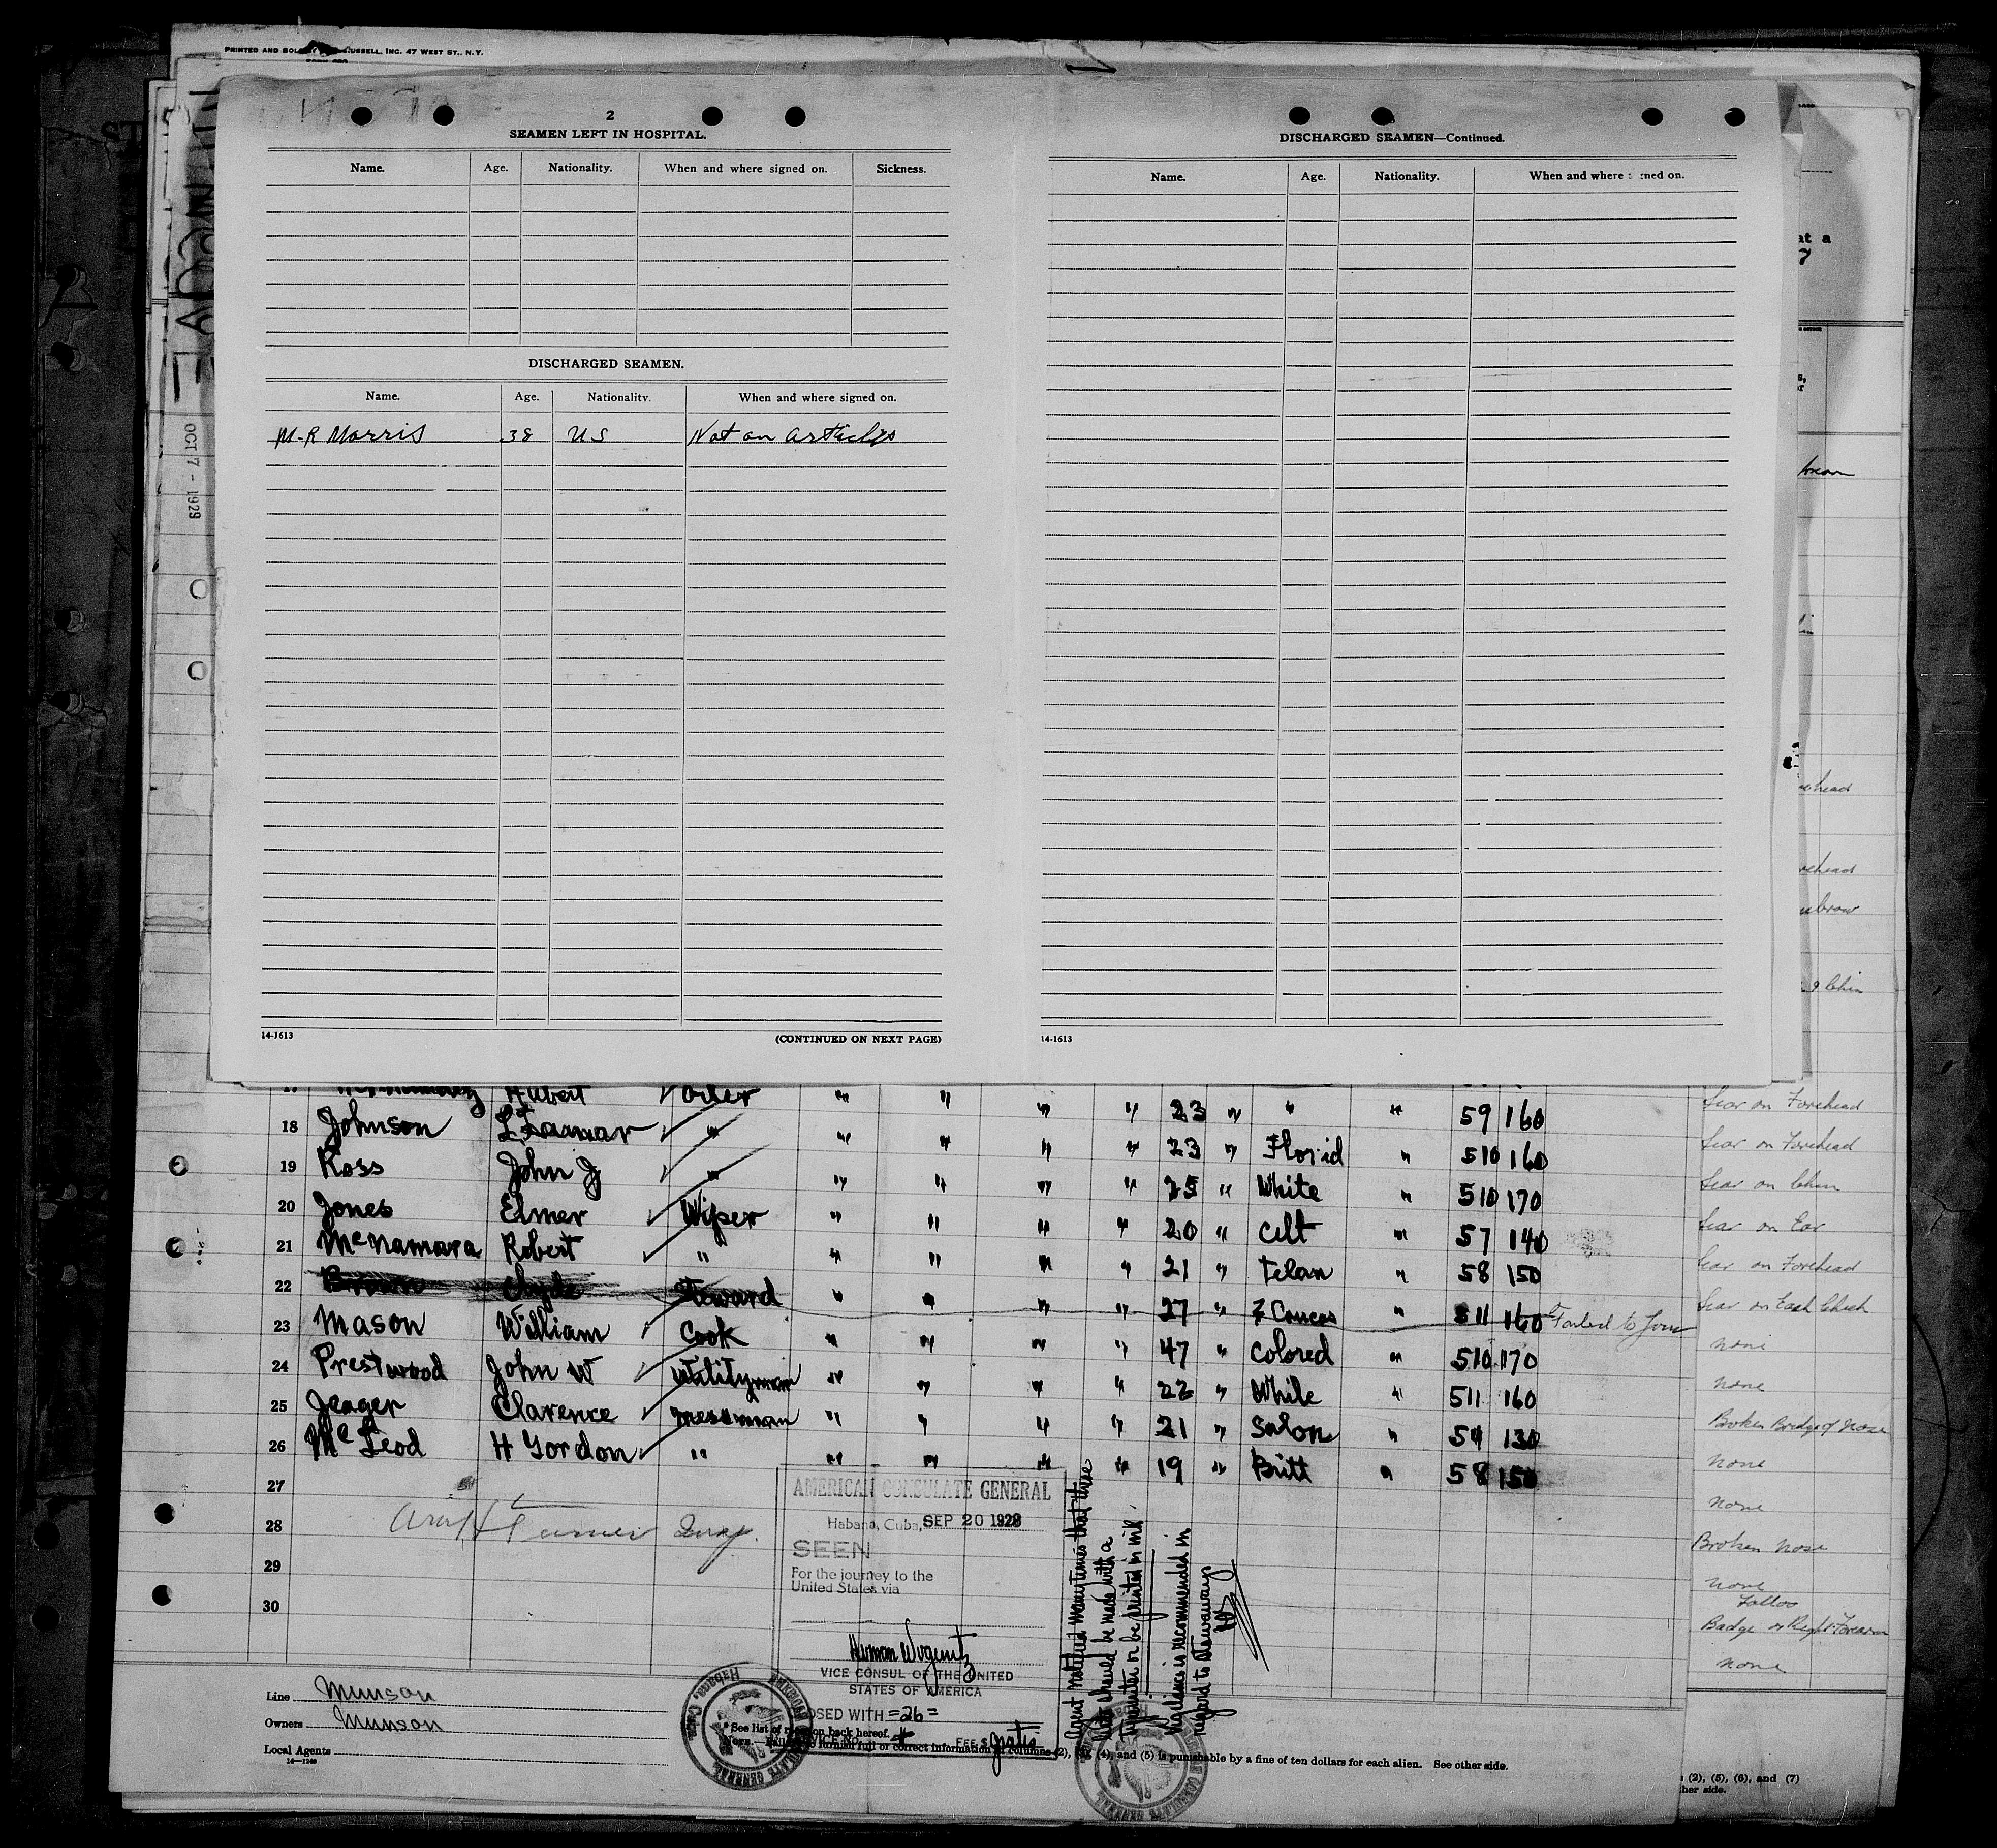 PRINTED AND BO RUSSELL, INC. 47 WEST ST., N.Y.
2
SEAMEN LEFT IN HOSPITAL.
Name. Age. Nationality. When and where signed on. Sickness.
DISCHARGED SEAMEN.
Name. Age. Nationality. When and where signed on.
M-R Morris 38 US Not on articles
14-1613 (CONTINUED ON NEXT PAGE)
DISCHARGED SEAMEN—Continued.
Name. Age. Nationality. When and where ned on.
14-1613
OCT 7 - 1929
at a
7
ehead
ehead
ebrow
g Chin
17 Hubert Oiler " " " " 23 " " " 59 160
18 Johnson " " " " " 23 " Florid " 510 160
19 Ross John J " " " " " 25 " White " 510 170
20 Jones Elmer Wiper " " " " 20 " Celt " 57 140
21 McNamara Robert " " " " " 21 " " 58 150
22 Brown Clyde Steward " " " " 27 " " 511 160 Failed to Join
23 Mason William Cook " " " " 47 " Colored " 510 170
24 Prestwood John W Utilityman " " " " 22 " White " 511 160
25 Jeager Clarence messman " " " " 21 " Salon " 54 130
26 McLeod H Gordon " " " " " 19 " Britt " 58 150
27
28
29
30
Scar on Forehead
Scar on Forehead
Scar on Chin
Scar on Ear
Scar on Forehead
Scar on Each Cheek
none
none
Broken Bridge of Nose
none
none
Broken Nose
none
Tattoo
Badge on Right Forearm
none
AMERICAN CONSULATE GENERAL
Habana, Cuba, SEP 20 1929
SEEN
For the journey to the
United States via
VICE CONSUL OF THE UNITED
STATES OF AMERICA
OSED WITH =26=
FEE $ gratis
Agent notified many times that these
lists should be made with a
typewriter or be printed in ink.
Vigilance is recommended in
regard to stowaways
Line Munson
Owners Munson
Local Agents
14—1240
See list of on back hereof.
NOTE.—Failure to furnish full or correct information in columns (2), (3), (4), and (5) is punishable by a fine of ten dollars for each alien. See other side.
(2), (5), (6), and (7)
her side.
AMERICAN CONSULATE GENERAL Habana, Cuba.